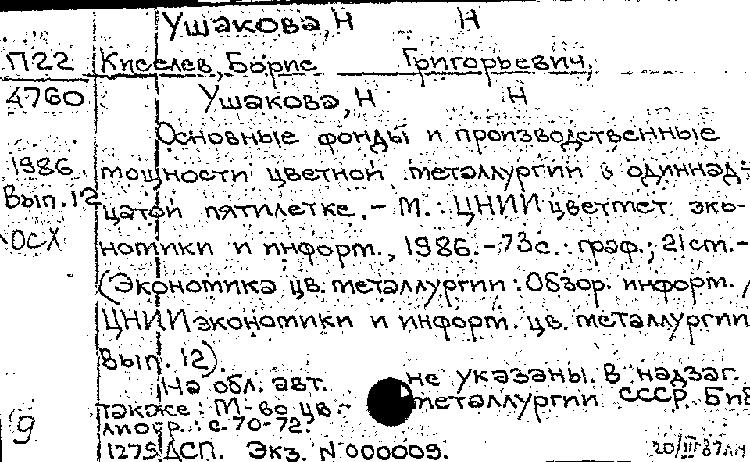 Ушакова, Н Н
П22 Киселев, Борис Григорьевич,
4760 Ушакова, Н Н
Основные фонды и производственные
1986 мощности цветной металлургии в одиннад-
Вып. 12 цатой пятилетке. - М.: ЦНИИцветмет эко-
ОСХ номики и информ., 1986. - 73с.: граф.; 21см. -
(Экономика цв. металлургии: Обзор. информ. /
ЦНИИ экономики и информ. цв. металлургии
Вып. 12).
На обл. авт. не указаны. В надзаг.
9 также: М-во цв. металлургии СССР. Биб
лиогр.: с. 70-72.
1275 ДСП. Экз. N 000009. 20/III-87